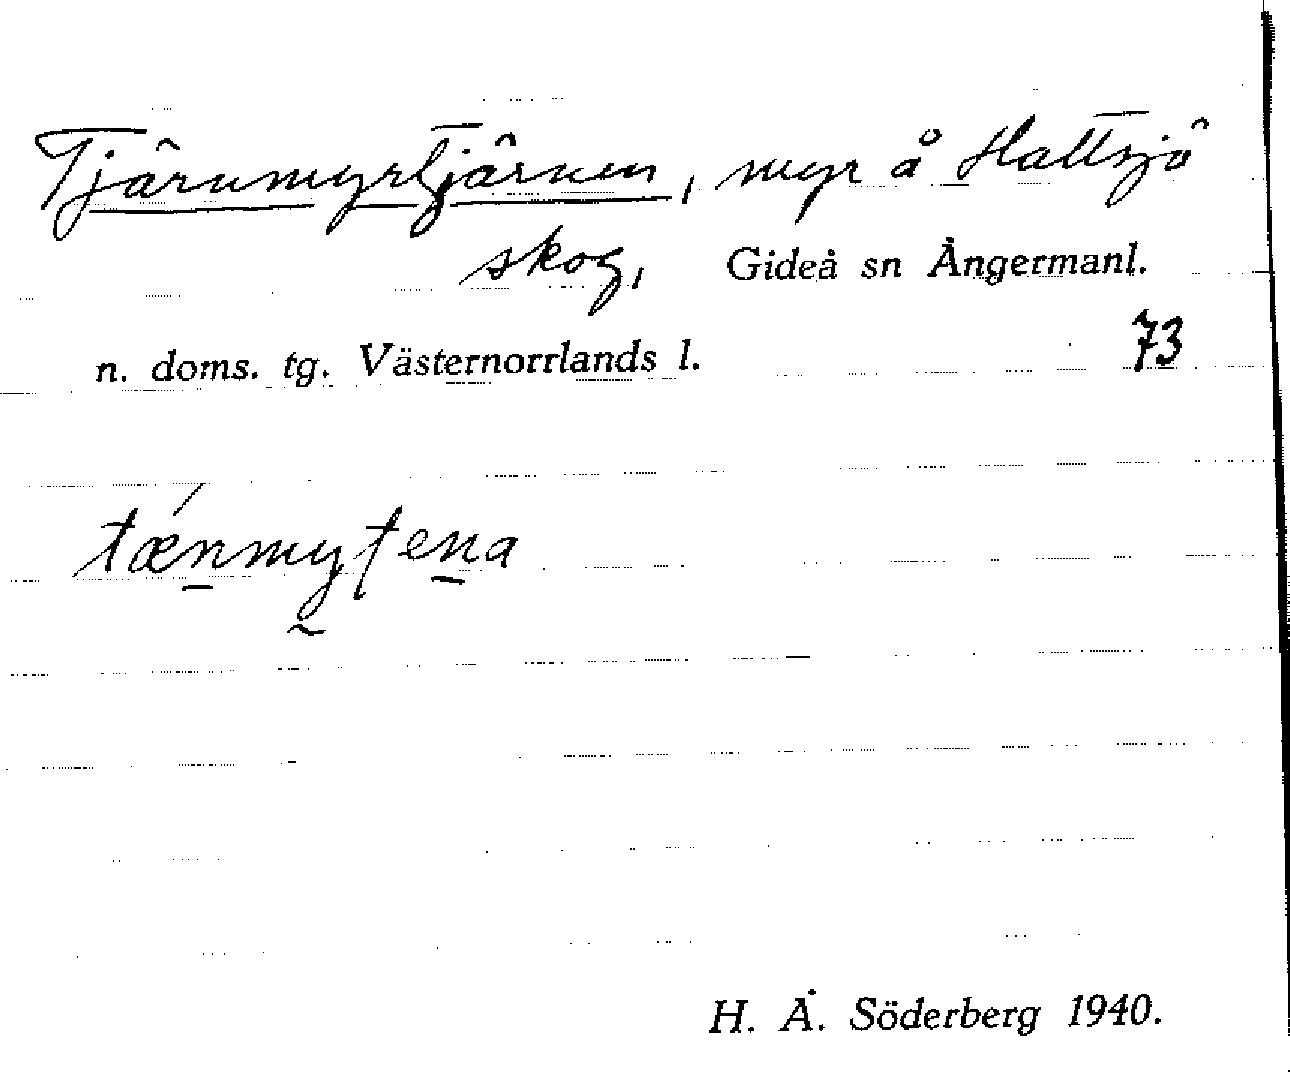 Tjärnmyrtjärnen, myr å Hattsjö
skog, Gideå sn Ångermanl.
n. doms. tg. Västernorrlands l. 73
H. Å. Söderberg 1940.